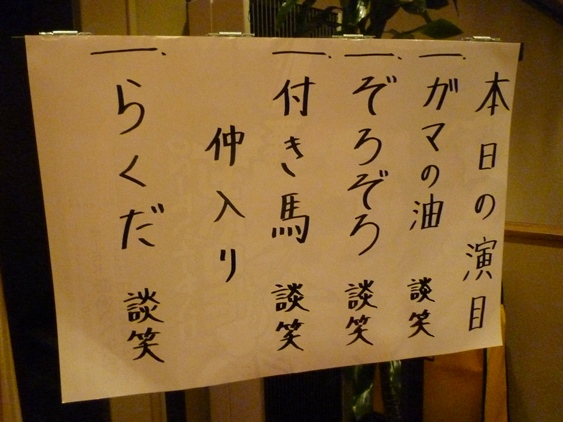 本日の演目
一、ガマの油 談笑
一、ぞろぞろ 談笑
一、付き馬 談笑
仲入り
一、らくだ 談笑